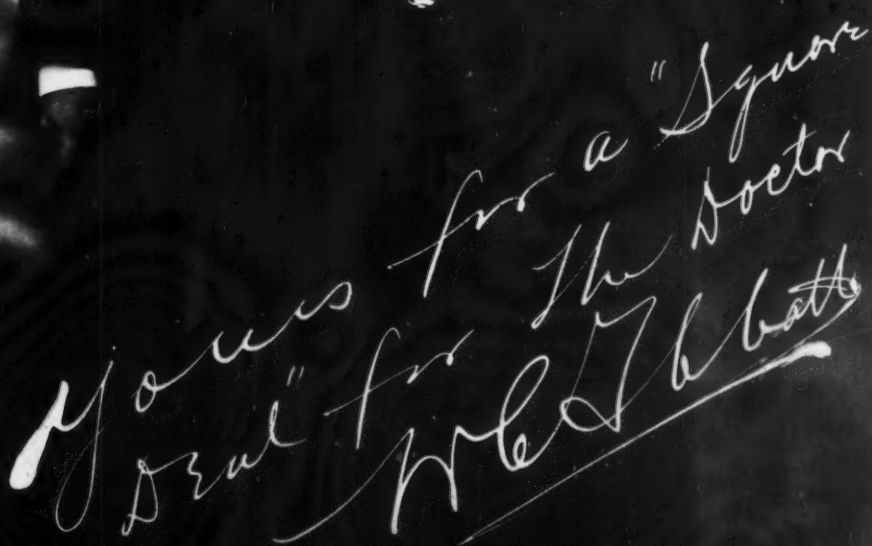 Yours for a "Square
Deal" for The Doctor
W C